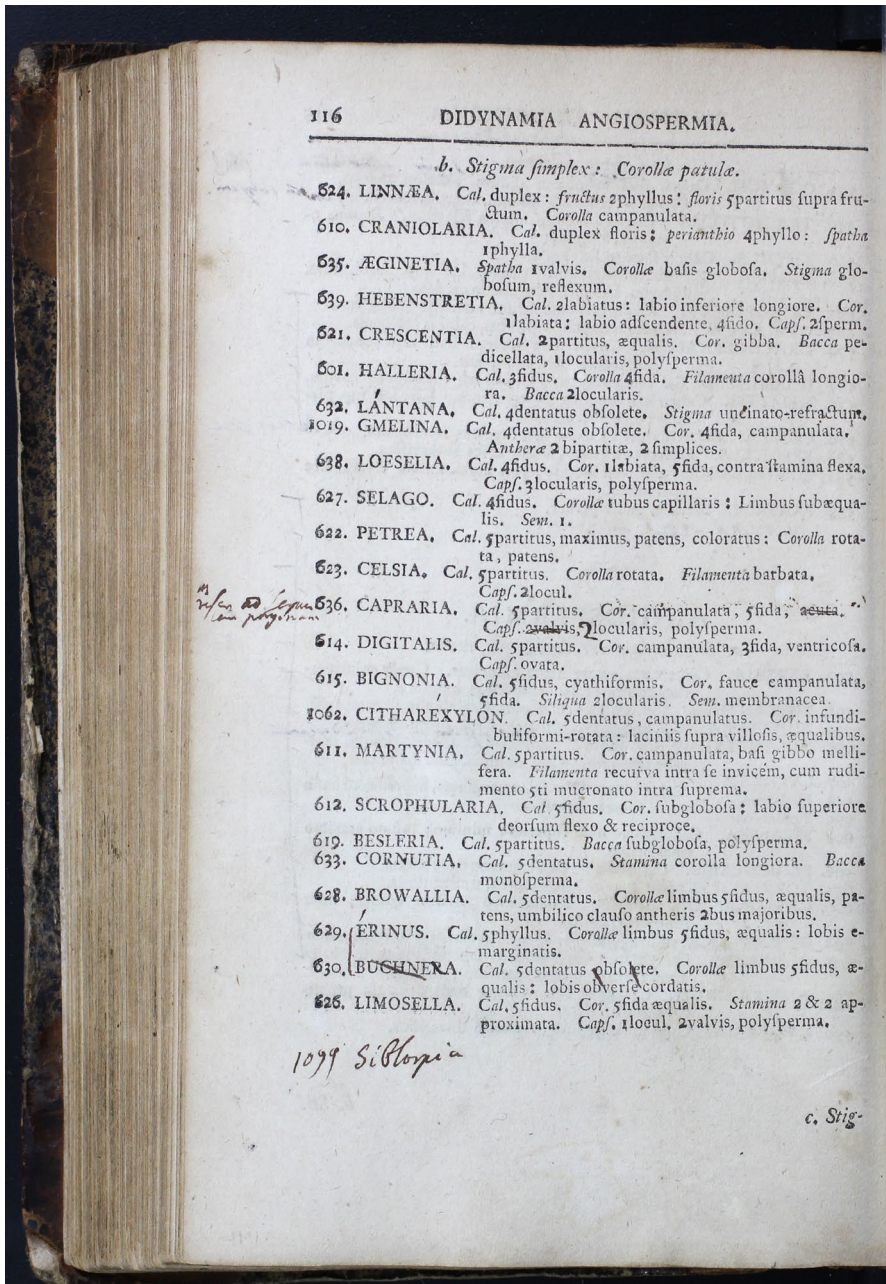 116 DIDYNAMIA ANGIOSPERMIA.
b. Stigma ſimplex: Corollæ patulæ.
624. LINNÆA. Cal. duplex: fructus 2phyllus: floris 5partitus ſupra fru-
ctum. Corolla campanulata.
610. CRANIOLARIA. Cal. duplex floris; perianthio 4phyllo: ſpatha
1phylla.
635. ÆGINETIA. Spatha 1valvis. Corollæ baſis globoſa. Stigma glo-
boſum, reflexum.
639. HEBENSTRETIA. Cal. 2labiatus: labio inferiore longiore. Cor.
1labiata: labio adſcendente, 4fido. Capſ. 2ſperm.
621. CRESCENTIA. Cal. 2partitus, æqualis. Cor. gibba. Bacca pe-
dicellata, 1locularis, polyſperma.
601. HALLERIA. Cal. 3fidus. Corolla 4fida. Filamenta corollâ longio-
ra. Bacca 2locularis.
632. LÁNTANA. Cal. 4dentatus obſolete. Stigma uncinato-refractum.
1019. GMELINA. Cal. 4dentatus obſolete. Cor. 4fida, campanulata.
Antheræ 2 bipartitæ, 2 ſimplices.
638. LOESELIA. Cal. 4fidus. Cor. 1labiata, 5fida, contra ſtamina flexa.
Capſ. 3locularis, polyſperma.
627. SELAGO. Cal. 4fidus. Corollæ tubus capillaris: Limbus ſubæqua-
lis. Sem. 1.
622. PETREA. Cal. 5partitus, maximus, patens, coloratus: Corolla rota-
ta, patens.
623. CELSIA. Cal. 5partitus. Corolla rotata. Filamenta barbata.
Capſ. 2locul.
ad
636. CAPRARIA. Cal. 5partitus. Cor. campanulata, 5fida, acuta.
Capſ. 2valvis, 2locularis, polyſperma.
614. DIGITALIS. Cal. 5partitus. Cor. campanulata, 3fida, ventricoſa.
Capſ. ovata.
615. BIGNONIA. Cal. 5fidus, cyathiformis. Cor. fauce campanulata,
5fida. Siliqua 2locularis. Sem. membranacea.
1062. CITHARÉXYLON. Cal. 5dentatus, campanulatus. Cor. infundi-
buliformi-rotata: laciniis ſupra villoſis, æqualibus.
611. MARTYNIA. Cal. 5partitus. Cor. campanulata, baſi gibbo melli-
fera. Filamenta recurva intra ſe invicem, cum rudi-
mento 5ti mucronato intra ſuprema.
612. SCROPHULARIA. Cal. 5fidus. Cor. ſubgloboſa: labio ſuperiore
deorſum flexo & reciproce.
619. BESLERIA. Cal. 5partitus. Bacca ſubgloboſa, polyſperma.
633. CORNUTIA. Cal. 5dentatus. Stamina corolla longiora. Bacca
monoſperma.
628. BROWALLIA. Cal. 5dentatus. Corollæ limbus 5fidus, æqualis, pa-
tens, umbilico clauſo antheris 2bus majoribus.
629. ÉRINUS. Cal. 5phyllus. Corollæ limbus 5fidus, æqualis: lobis e-
marginatis.
630. BUCHNERA. Cal. 5dentatus obſolete. Corollæ limbus 5fidus, æ-
qualis: lobis obverſe cordatis.
626. LIMOSELLA. Cal. 5fidus. Cor. 5fida æqualis. Stamina 2 & 2 ap-
proximata. Capſ. 1locul. 2valvis, polyſperma.
1099 Sibthorpia
c. Stig-